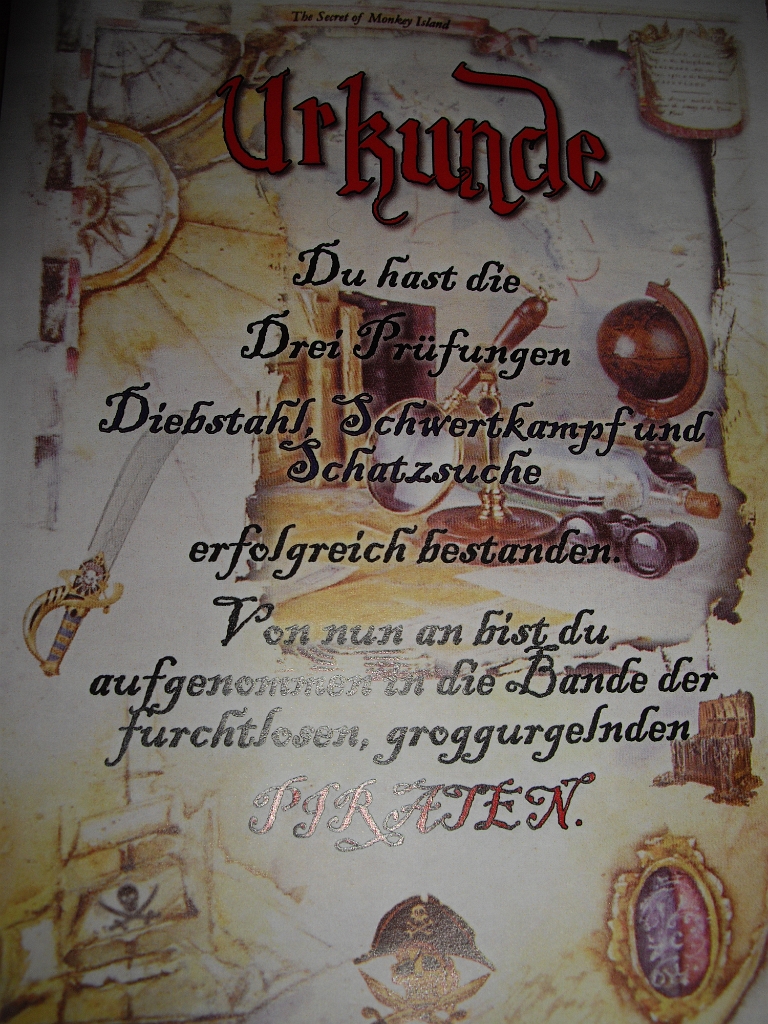 The Secret of Monkey Island
Urkunde
Du hast die
Drei Prüfungen
Diebstahl, Schwertkampf und
Schatzsuche
erfolgreich bestanden.
Von nun an bist du
aufgenommen in die Bande der
furchtlosen, groggurgelnden
PIRATEN.